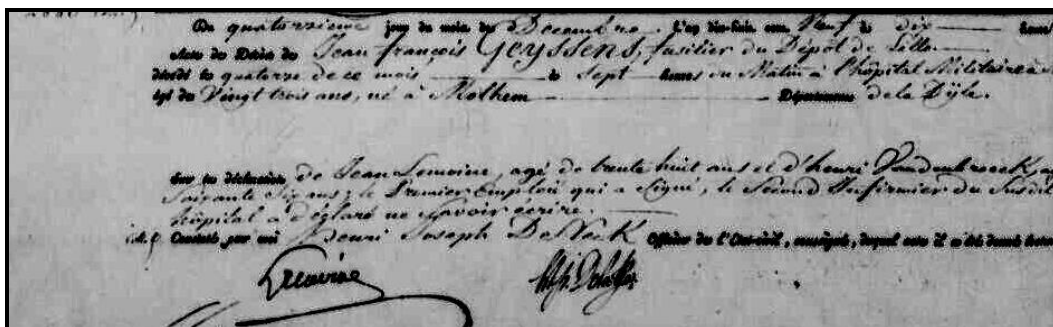 Du quatorzieme jour du mois de Decembre L'an dix-huit cent Neuf à dix heures
Acte de Décès de Jean françois Geyssens, fusilier du Dépot de Lille
décédé le quatorze de ce mois à Sept heures du Matin à l'hôpital Militaire
âgé de Vingt trois ans, né à Molhem Département de la Dyle.
Sur la déclaration de Jean Lemoine, agé de trente huit ans et d'henri
Soixante Six ans; le Premier Emploié qui a Signé, le Second Infirmier du Susdit
hôpital a déclaré ne Savoir écrire.
Constaté, par moi Henri Joseph Officier de l'Etat civil, soussigné, duquel acte il a été donné lecture
Lemoine